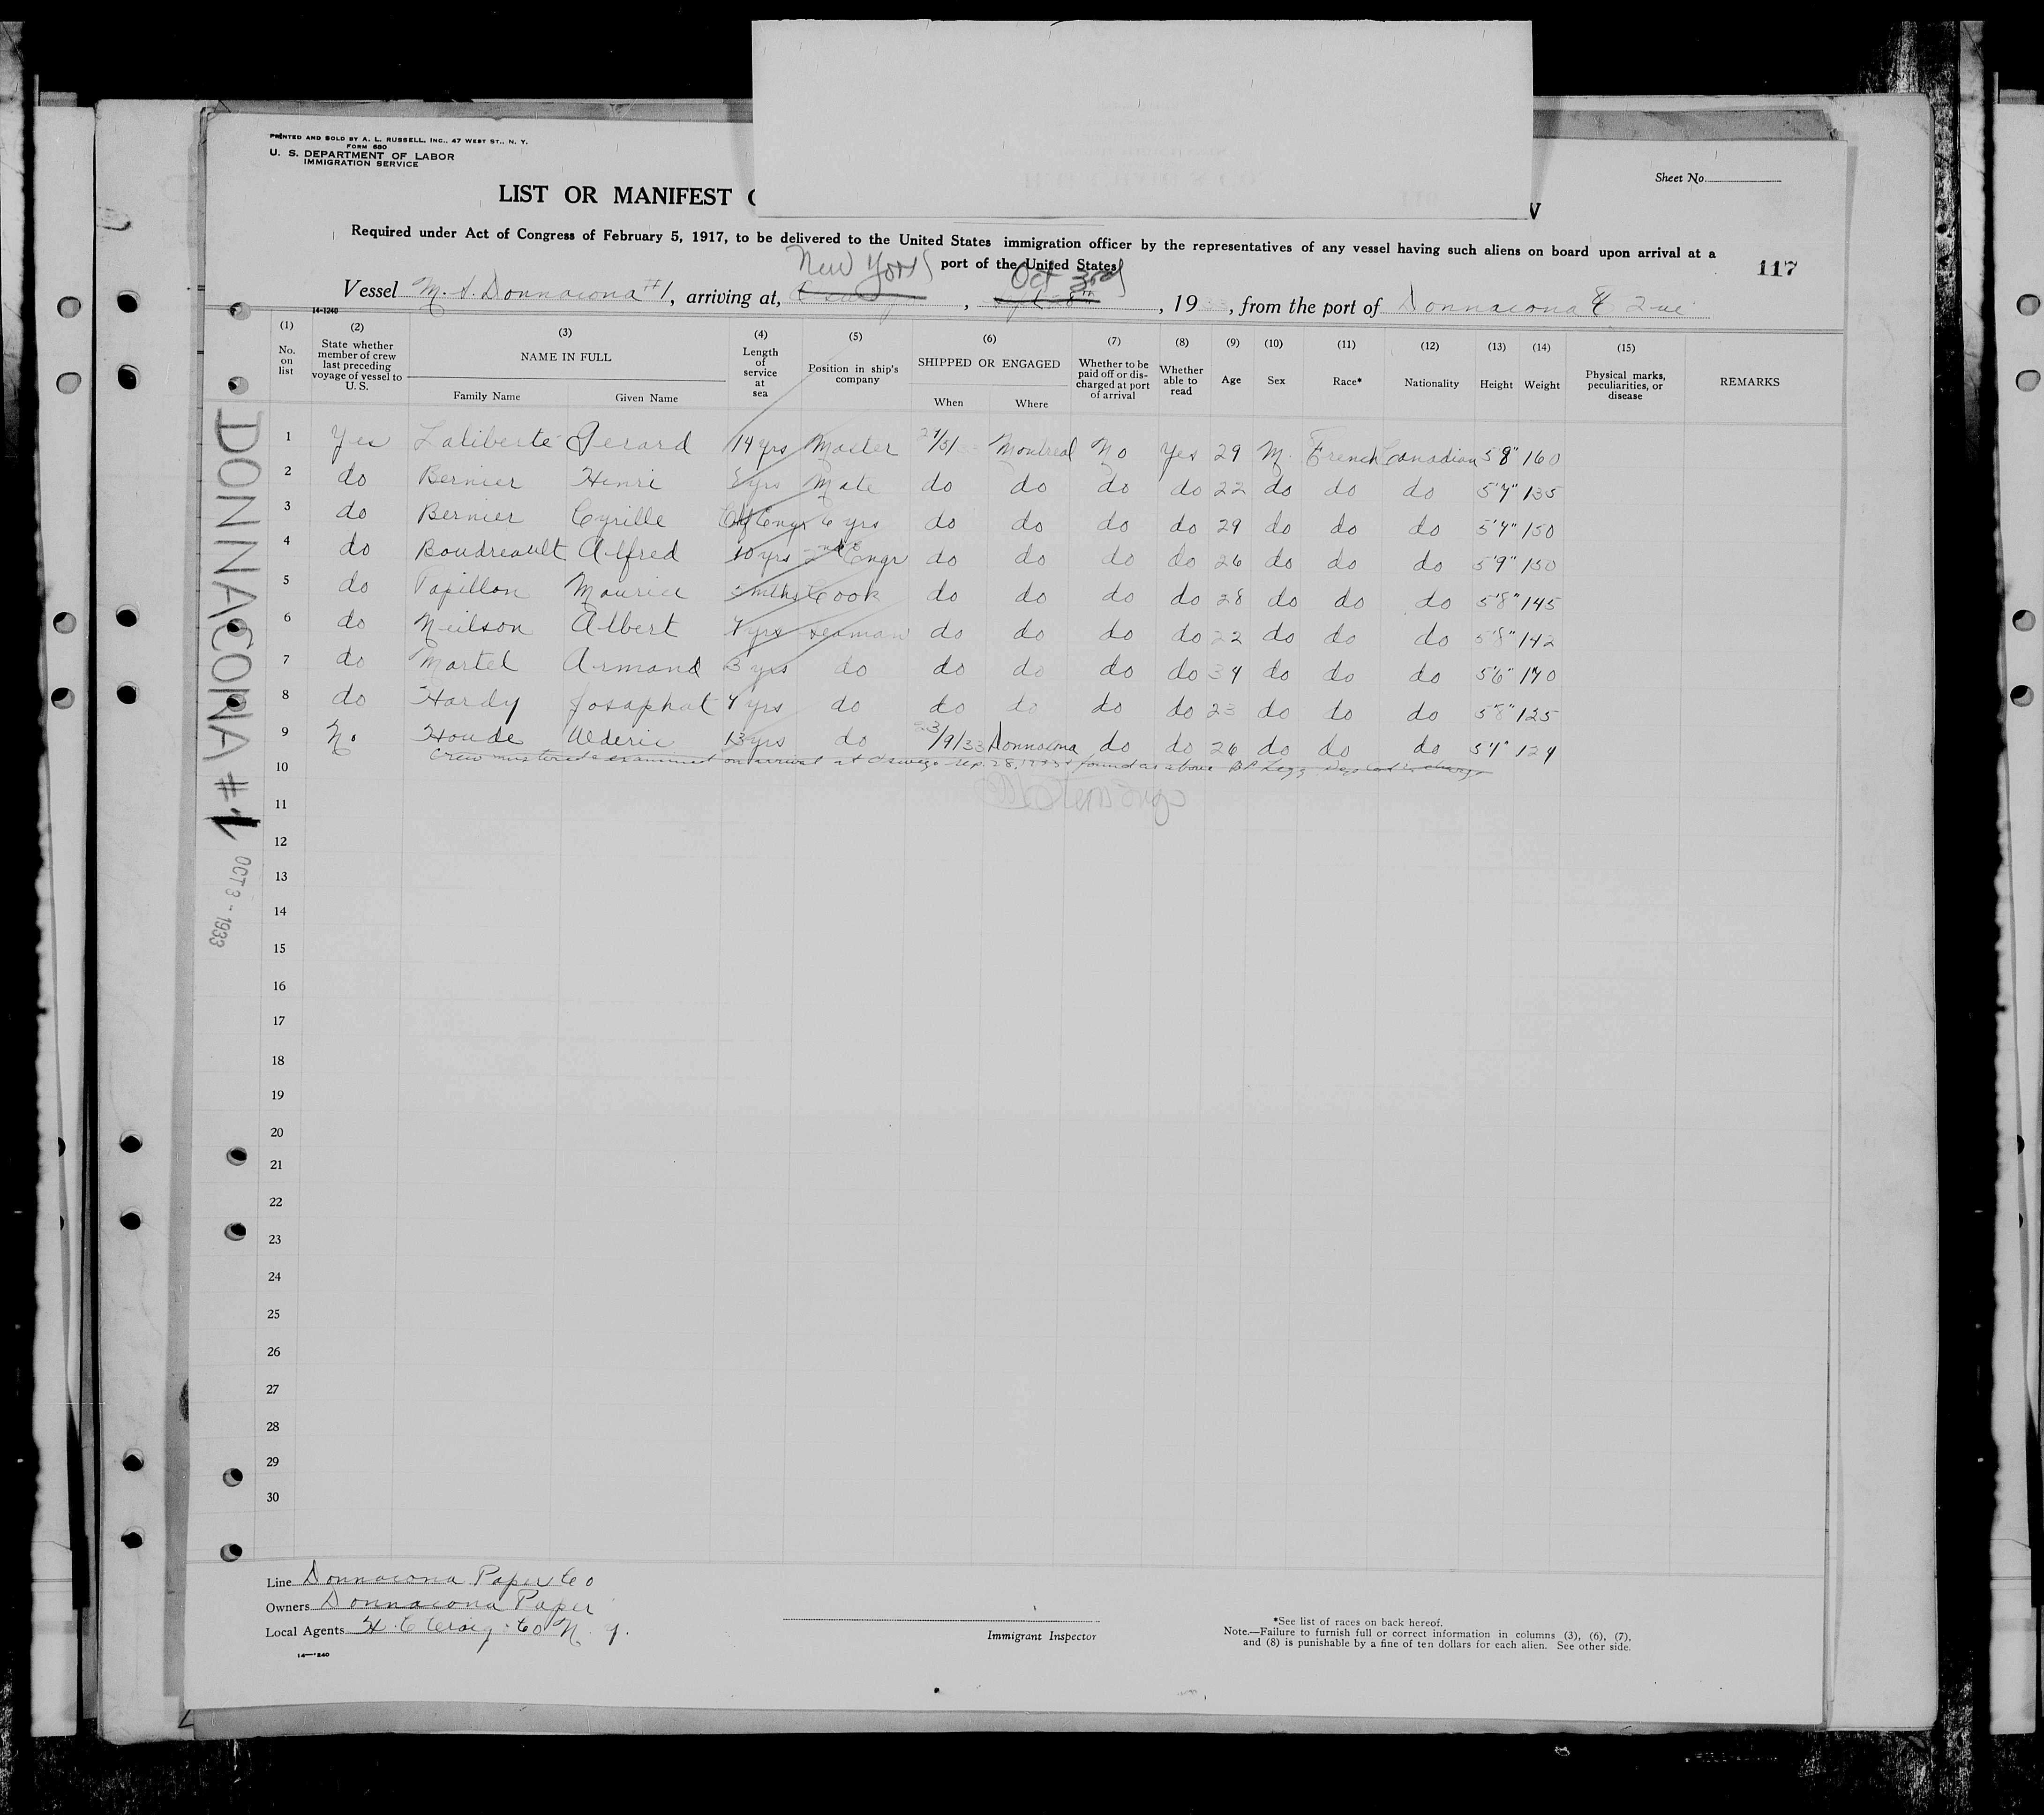 PRINTED AND SOLD BY A. L. RUSSELL, INC., 47 WEST ST., N. Y.
FORM 680
U. S. DEPARTMENT OF LABOR
IMMIGRATION SERVICE
Sheet No.
LIST OR MANIFEST
Required under Act of Congress of February 5, 1917, to be delivered to the United States immigration officer by the representatives of any vessel having such aliens on board upon arrival at a
port of the United States
117
New York Oct 3rd
Vessel M. S. Donnacona #1, arriving at, , , 1933, from the port of Donnacona Que
14-1240
(1) (2) (3) (4) (5) (6) (7) (8) (9) (10) (11) (12) (13) (14) (15)
No. on list State whether member of crew last preceding voyage of vessel to U. S. NAME IN FULL Length of service at sea Position in ship's company SHIPPED OR ENGAGED Whether to be paid off or discharged at port of arrival Whether able to read Age Sex Race* Nationality Height Weight Physical marks, peculiarities, or disease REMARKS
Family Name Given Name When Where
1 Yes Laliberte Gerard 14 yrs Master Montreal No Yes 29 M. French Canadian 5'8" 160
2 do Bernier Henri yrs Mate do do do do 22 do do do 135
3 do Bernier Cyrille Chf Engr 6 yrs do do do do 29 do do do 150
4 do Boudreault Alfred 10 yrs 2nd Engr do do do do 26 do do do 5'9" 150
5 do Papillon Maurice 5 mths Cook do do do do 28 do do do 5'8" 145
6 do Neilson Albert yrs seaman do do do do 22 do do do 5'8" 142
7 do Martel Armand 3 yrs do do do do do do do do 5'6" 170
8 do Hardy Josaphat yrs do do do do do 23 do do do 5'8" 125
9 No Houde Alderic 13 yrs do 23/9/33 Donnacona do do 26 do do do
Crew mustered & examined on arrival at Oswego Sep. 28, 1933 & found as above
10
11
12
13
14
15
16
17
18
19
20
21
22
23
24
25
26
27
28
29
30
DONNACONA #1
OCT 3 - 1933
Line Donnacona Paper Co
Owners Donnacona Paper
Local Agents H. C Craig Co N. Y.
Immigrant Inspector
*See list of races on back hereof.
Note.—Failure to furnish full or correct information in columns (3), (6), (7),
and (8) is punishable by a fine of ten dollars for each alien. See other side.